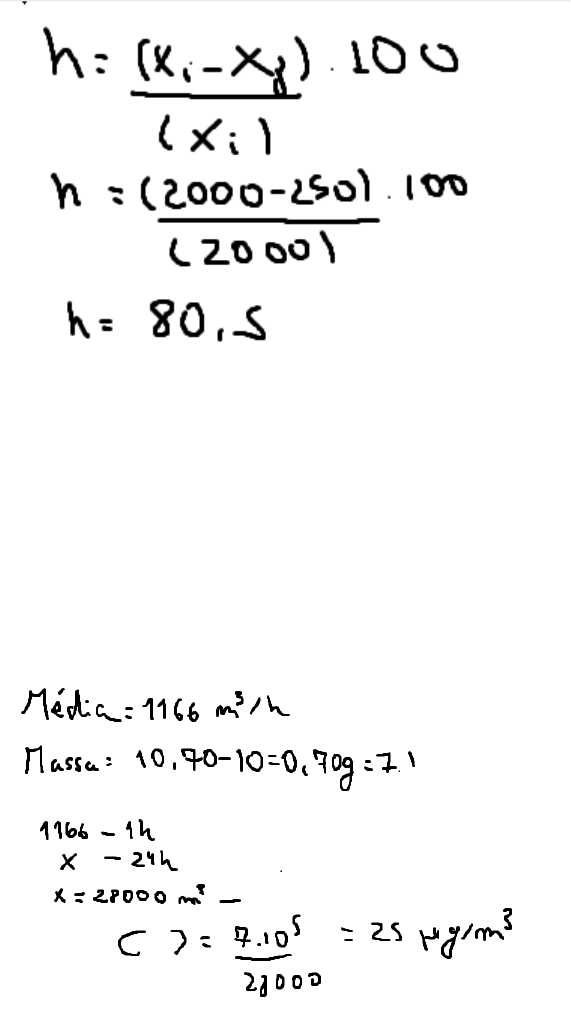 h = (xi - xf) . 100
(xi)
h = (2000-250) . 100
(2000)
h = 80,5
Média = 1166 m³/h
Massa: 10,70-10=0,70g = 7.1
1166 - 1h
x - 24h
x = 28000 m³ -
( ) = 7.10⁵ = 25 µg/m³
28000